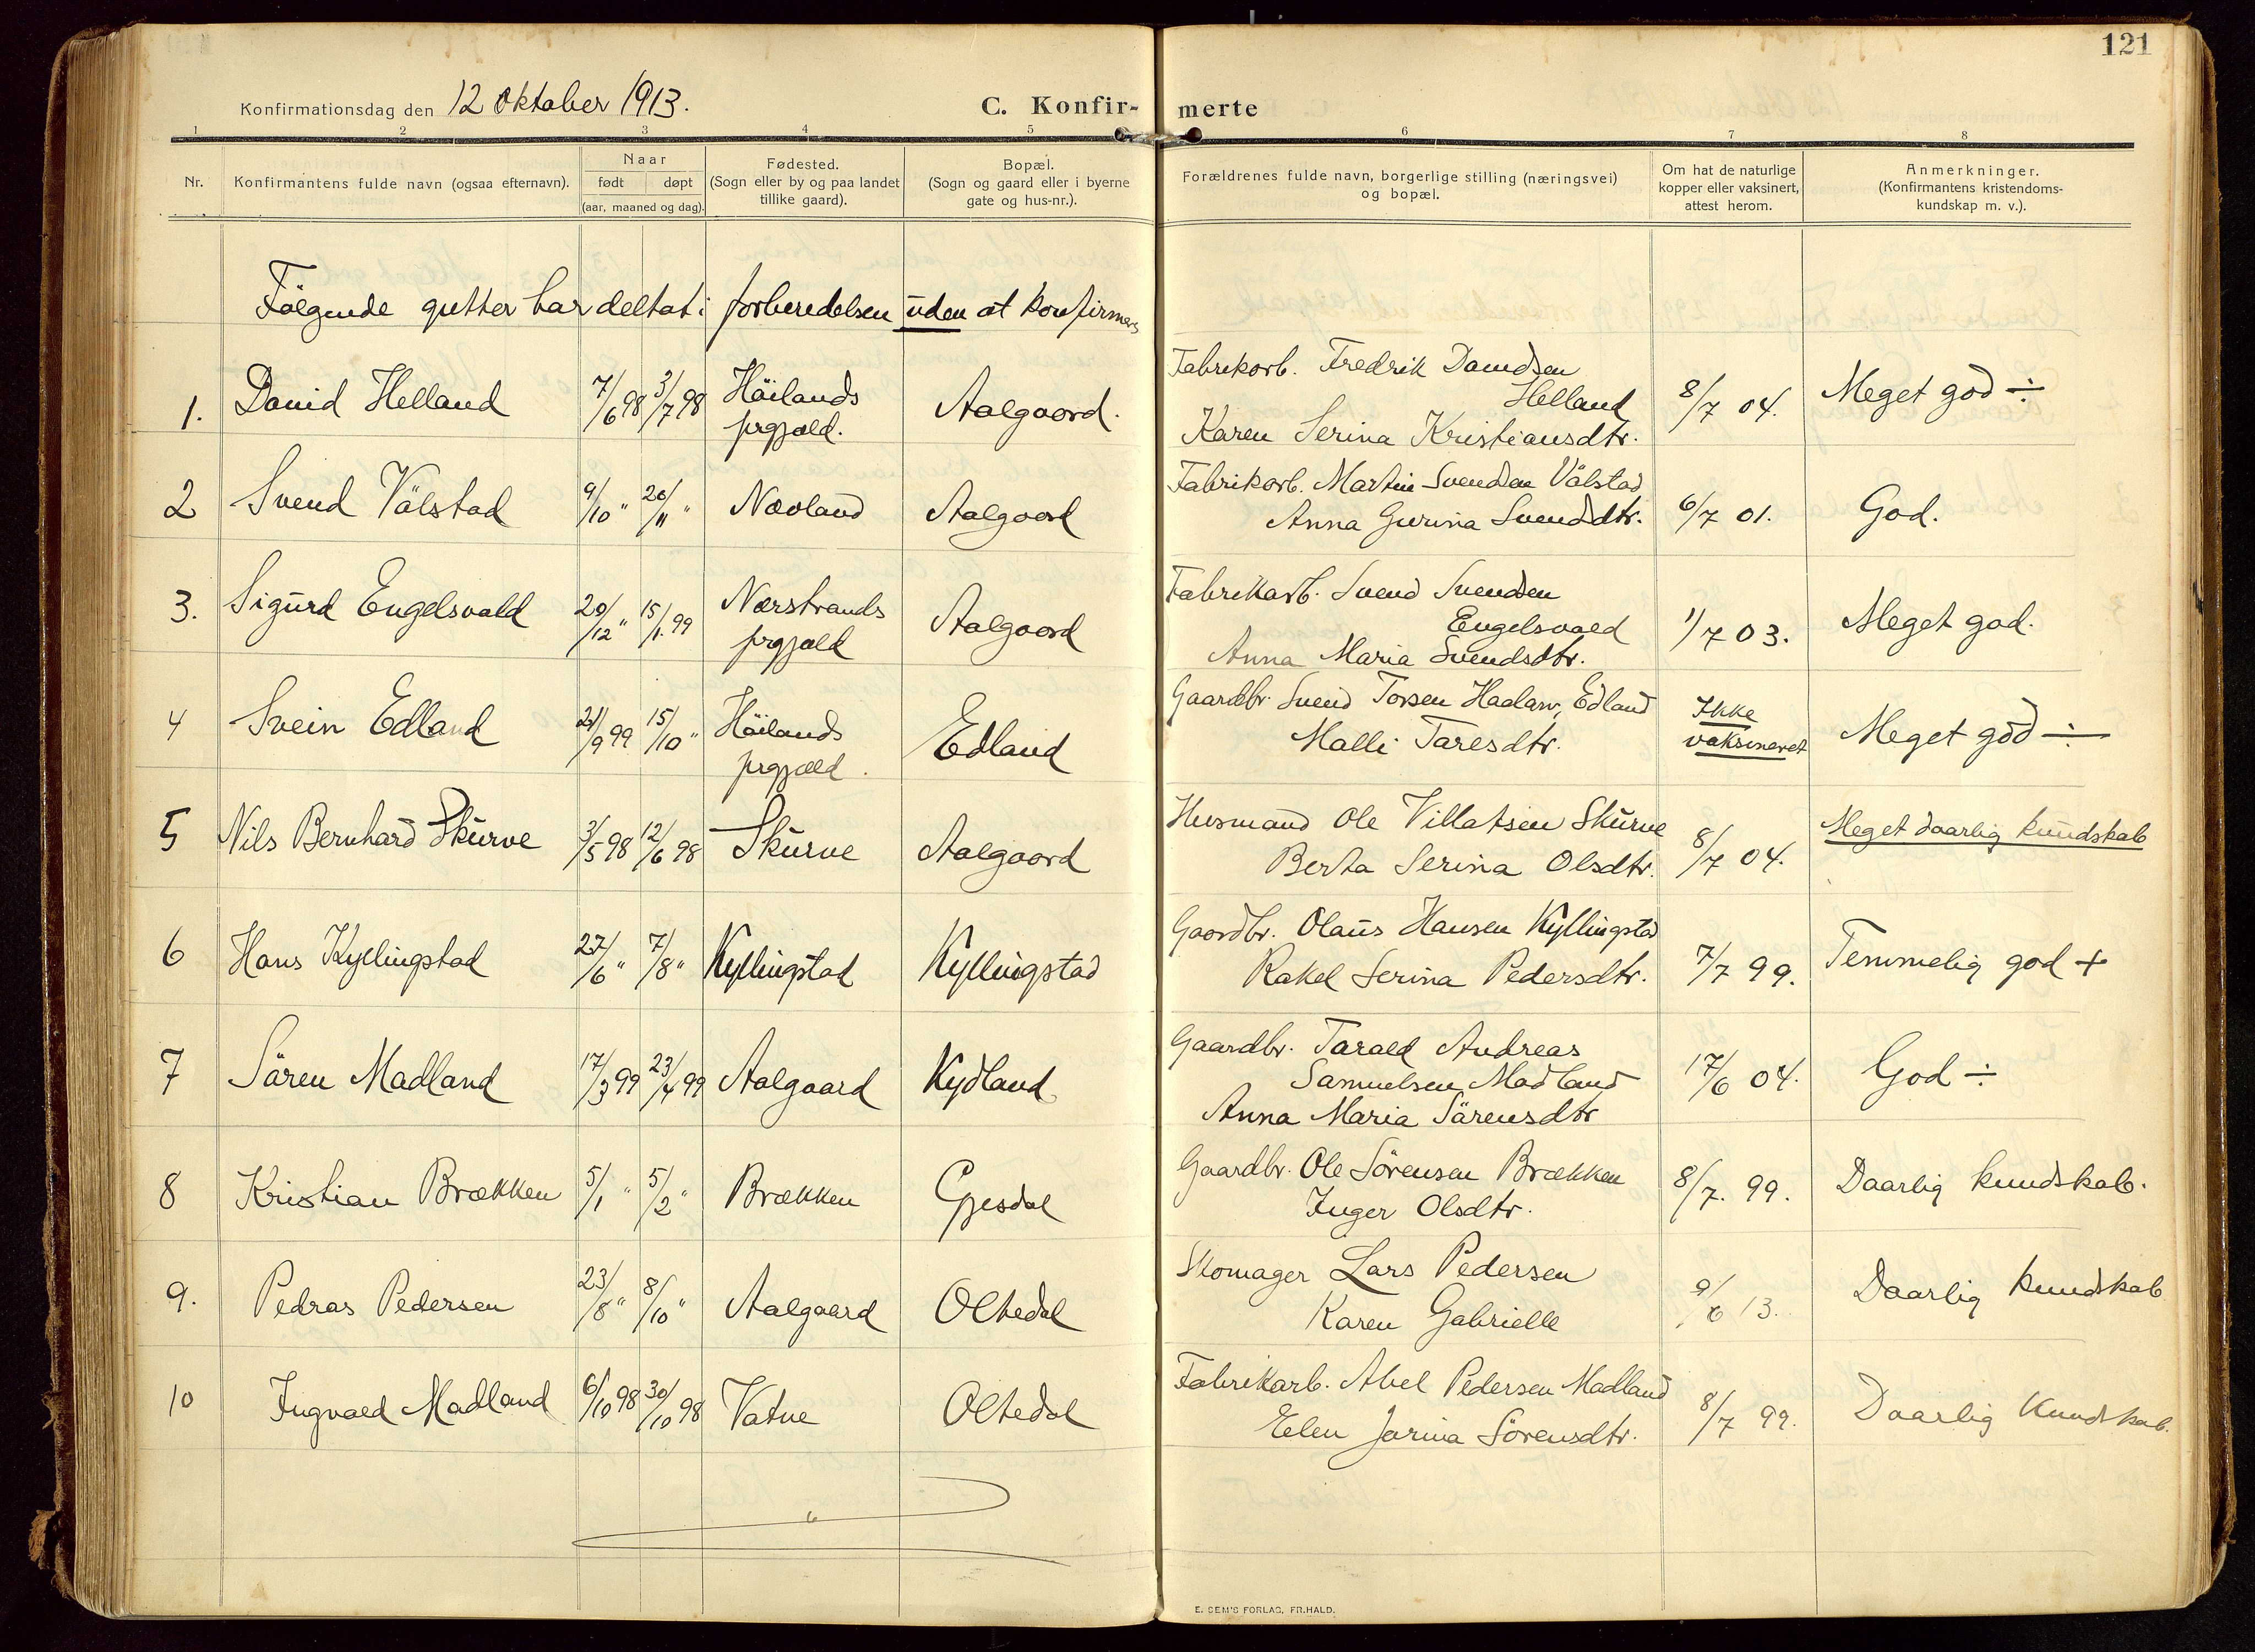 121
Konfirmationsdag den 12 Oktober 1913.
C. Konfir- merte
1 2 3 4 5 6 7 8
Nr.
Konfirmantens fulde navn (ogsaa efternavn).
Naar
født døpt
(aar, maaned og dag).
Fødested.
(Sogn eller by og paa landet
tillike gaard).
Bopæl.
(Sogn og gaard eller i byerne
gate og hus-nr.).
Forældrenes fulde navn, borgerlige stilling (næringsvei)
og bopæl.
Om hat de naturlige
kopper eller vaksinert,
attest herom.
Anmerkninger.
(Konfirmantens kristendoms-
kundskap m. v.).
Følgende gutter har deltat i forberedelsen uden at konfirmers
1. David Helland 7/6 98 3/7 98 Höilands prgjæld. Aalgaard. Fabrikarb. Fredrik Davidsen
Helland
Karen Serina Kristiansdtr. 8/7 04. Meget god ÷
2 Svend Välstad 9/10 " 20/11 " Nævland Aalgaard Fabrikarb. Martin Svendsen Välstad
Anna Gurina Svenddtr. 6/7 01. God.
3. Sigurd Engelsvold 29/12 " 15/1. 99 Nærstrands prgjæld Aalgaard Fabrikarb. Svend Svendsen
Engelsvold
Anna Maria Svendsdtr. 1/7 03. Meget god.
4 Svein Edland 21/9 99 15/10 " Höilands prgjæld. Edland Gaardbr. Svend Torsen Haaland, Edland
Malli Taresdtr. Ikke
vaksineret Meget god ÷
5 Nils Bernhard Skurve 3/5 98 12/6 98 Skurve Aalgaard Husmand Ole Villatsen Skurve
Berta Serina Olsdtr. 8/7 04. Meget daarlig kundskab
6 Hans Kyllingstad 27/6 " 7/8 " Kyllingstad Kyllingstad Gaardbr. Olaus Hansen Kyllingstad
Rakel Serina Pedersdtr. 7/7 99. Temmelig god +
7 Sören Madland 17/3 99 23/4 99 Aalgaard Kydland Gaardbr. Tarald Andreas
Samuelsen Madland
Anna Maria Sörensdtr 17/6 04. God ÷
8 Kristian Brækken 5/1 " 5/2 " Brækken Gjesdal Gaardbr. Ole Sörensen Brækken
Inger Olsdtr. 8/7. 99. Daarlig kundskab.
9. Pedras Pedersen 23/8 " 8/10 " Aalgaard Oltedal Skomager Lars Pedersen
Karen Gabrielle 9/6 13. Daarlig kundskab
10 Ingvald Madland 6/10 98 30/10 98 Vatne Oltedal Fabrikarb. Abel Pedersen Madland
Elen Jorina Sörensdtr. 8/7 99. Daarlig Kundskab.
E. SEM'S FORLAG, FR.HALD.